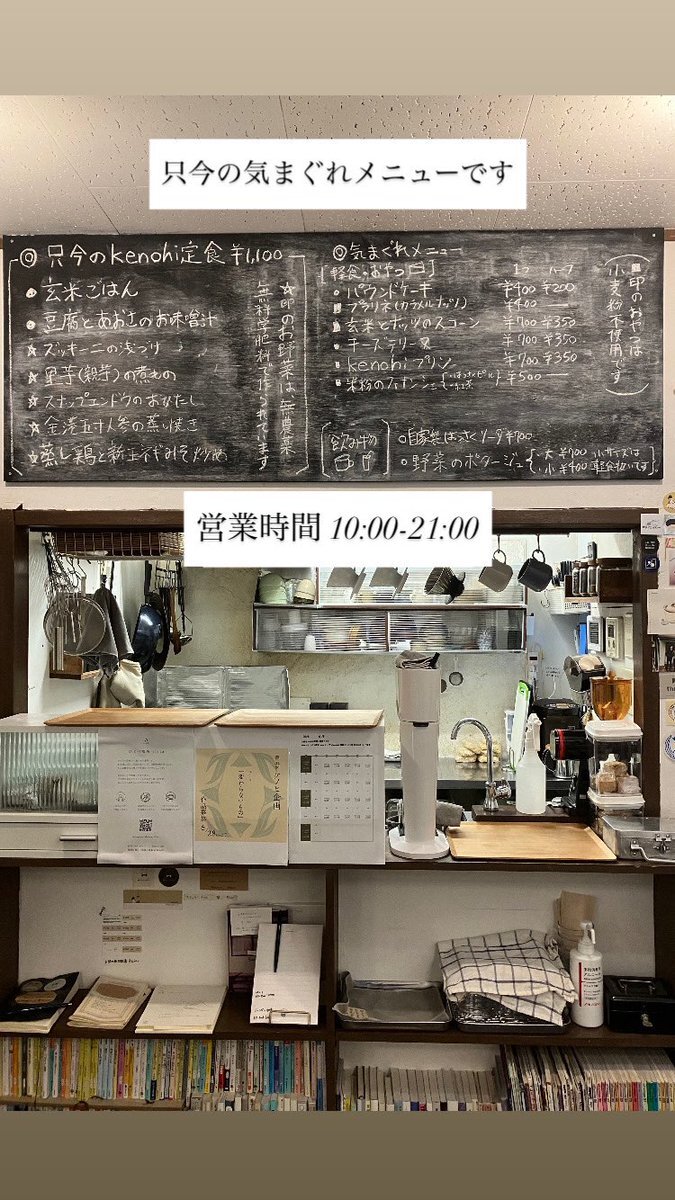 只今の気まぐれメニューです
◎只今のkenohi定食 ¥1,100
●玄米ごはん
●豆腐とあおさのお味噌汁
☆ズッキーニの浅づけ
☆里芋(親芋)の煮もの
☆スナップエンドウのおひたし
☆金港五寸人参の蒸し焼き
☆蒸し鶏と新玉ネギみそ炒め
☆印のお野菜は無農薬
無科学肥料で作られています
◎気まぐれメニュー
軽食・おやつ
1コ ハーフ
パウンドケーキ ¥400 ¥200
プラリネ(カラメルナッツ) ¥400 ―
玄米とナッツのスコーン ¥700 ¥350
チーズテリーヌ ¥700 ¥350
kenohiプリン ¥700 ¥350
米粉の ¥500 ―
■印のおやつは
小麦粉不使用です
飲み物
○自家製はっさくソーダ ¥700
○野菜のポタージュ 大 ¥700 小サイズは
小 ¥400 軽食扱いです
営業時間 10:00-21:00